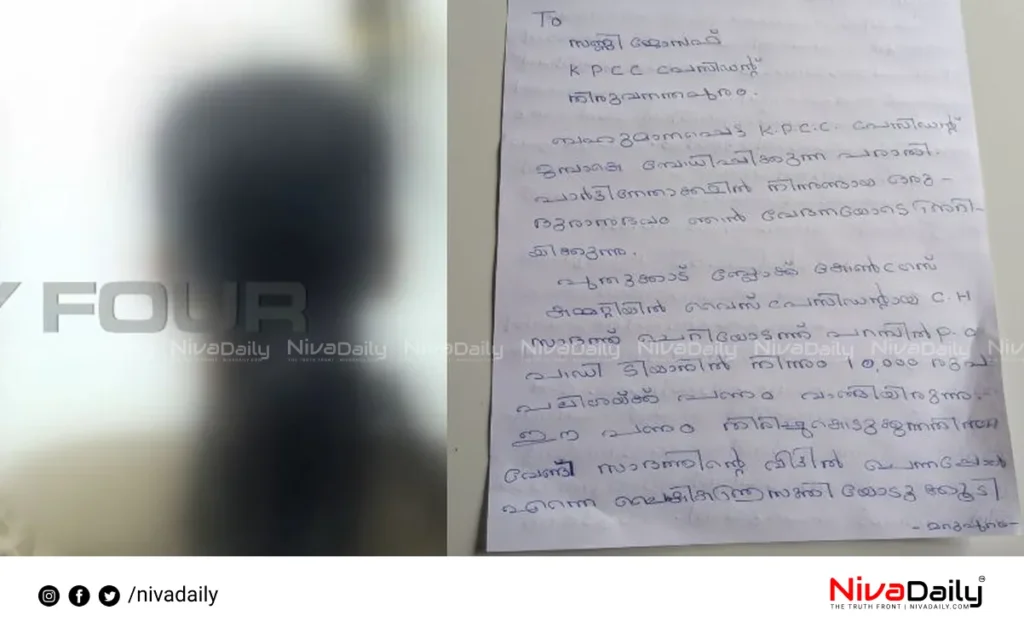 Y FOUR
NivaDaily NivaDaily NivaDaily NivaDaily NivaDaily NivaDaily NivaDaily
To
സണ്ണി ജോസഫ്
K P C C പ്രസിഡന്റ്
തിരുവനന്തപുരം.
ബഹുമാനപ്പെട്ട K.P.C.C. പ്രസിഡന്റ്
മുമ്പാകെ ബോധിപ്പിക്കുന്ന പരാതി.
പാർട്ടിനേതാക്കളിൽ നിന്നുണ്ടായ ഒരു -
ദുരാനുഭവം ഞാൻ വേദനയോടെ
യിക്കുന്നു.
പുതുക്കോട് ബ്ലോക്ക് കോൺഗ്രസ്
കമ്മറ്റിയിൽ വൈസ് പ്രസിഡന്റായ C.H
സാദത്ത് P.O
പാഡി ടിയാനിൽ നിന്നും 10,000 രൂപ
പലിശയ്ക്ക് പണം വാങ്ങിയിരുന്നു.
ഈ പണം തിരിച്ചുകൊടുക്കുന്നതിന്
വേണ്ടി സാദത്തിന്റെ വീട്ടിൽ ചെന്നപ്പോൾ
എന്നെ യോടു കൂടി
- മറുപുറം -
/nivadaily
NivaDaily
THE TRUTH FRONT | NIVADAILY.COM